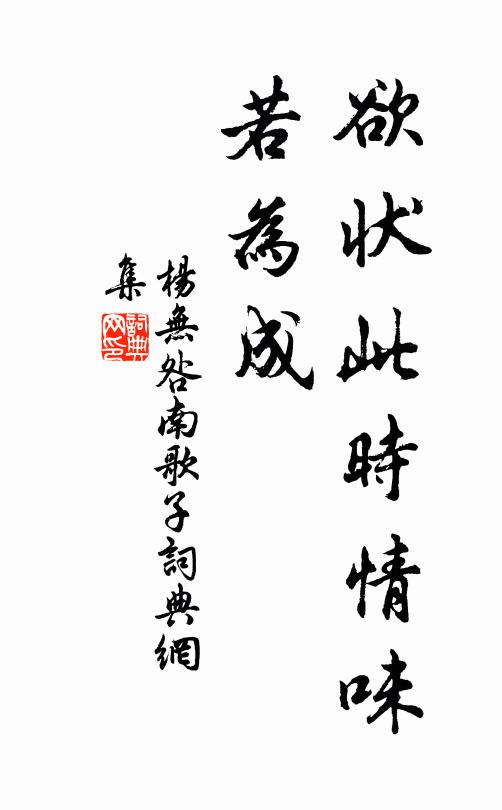 欲状此時情味
若為成
楊無咎南歌子詞典網
集
詞典
网印